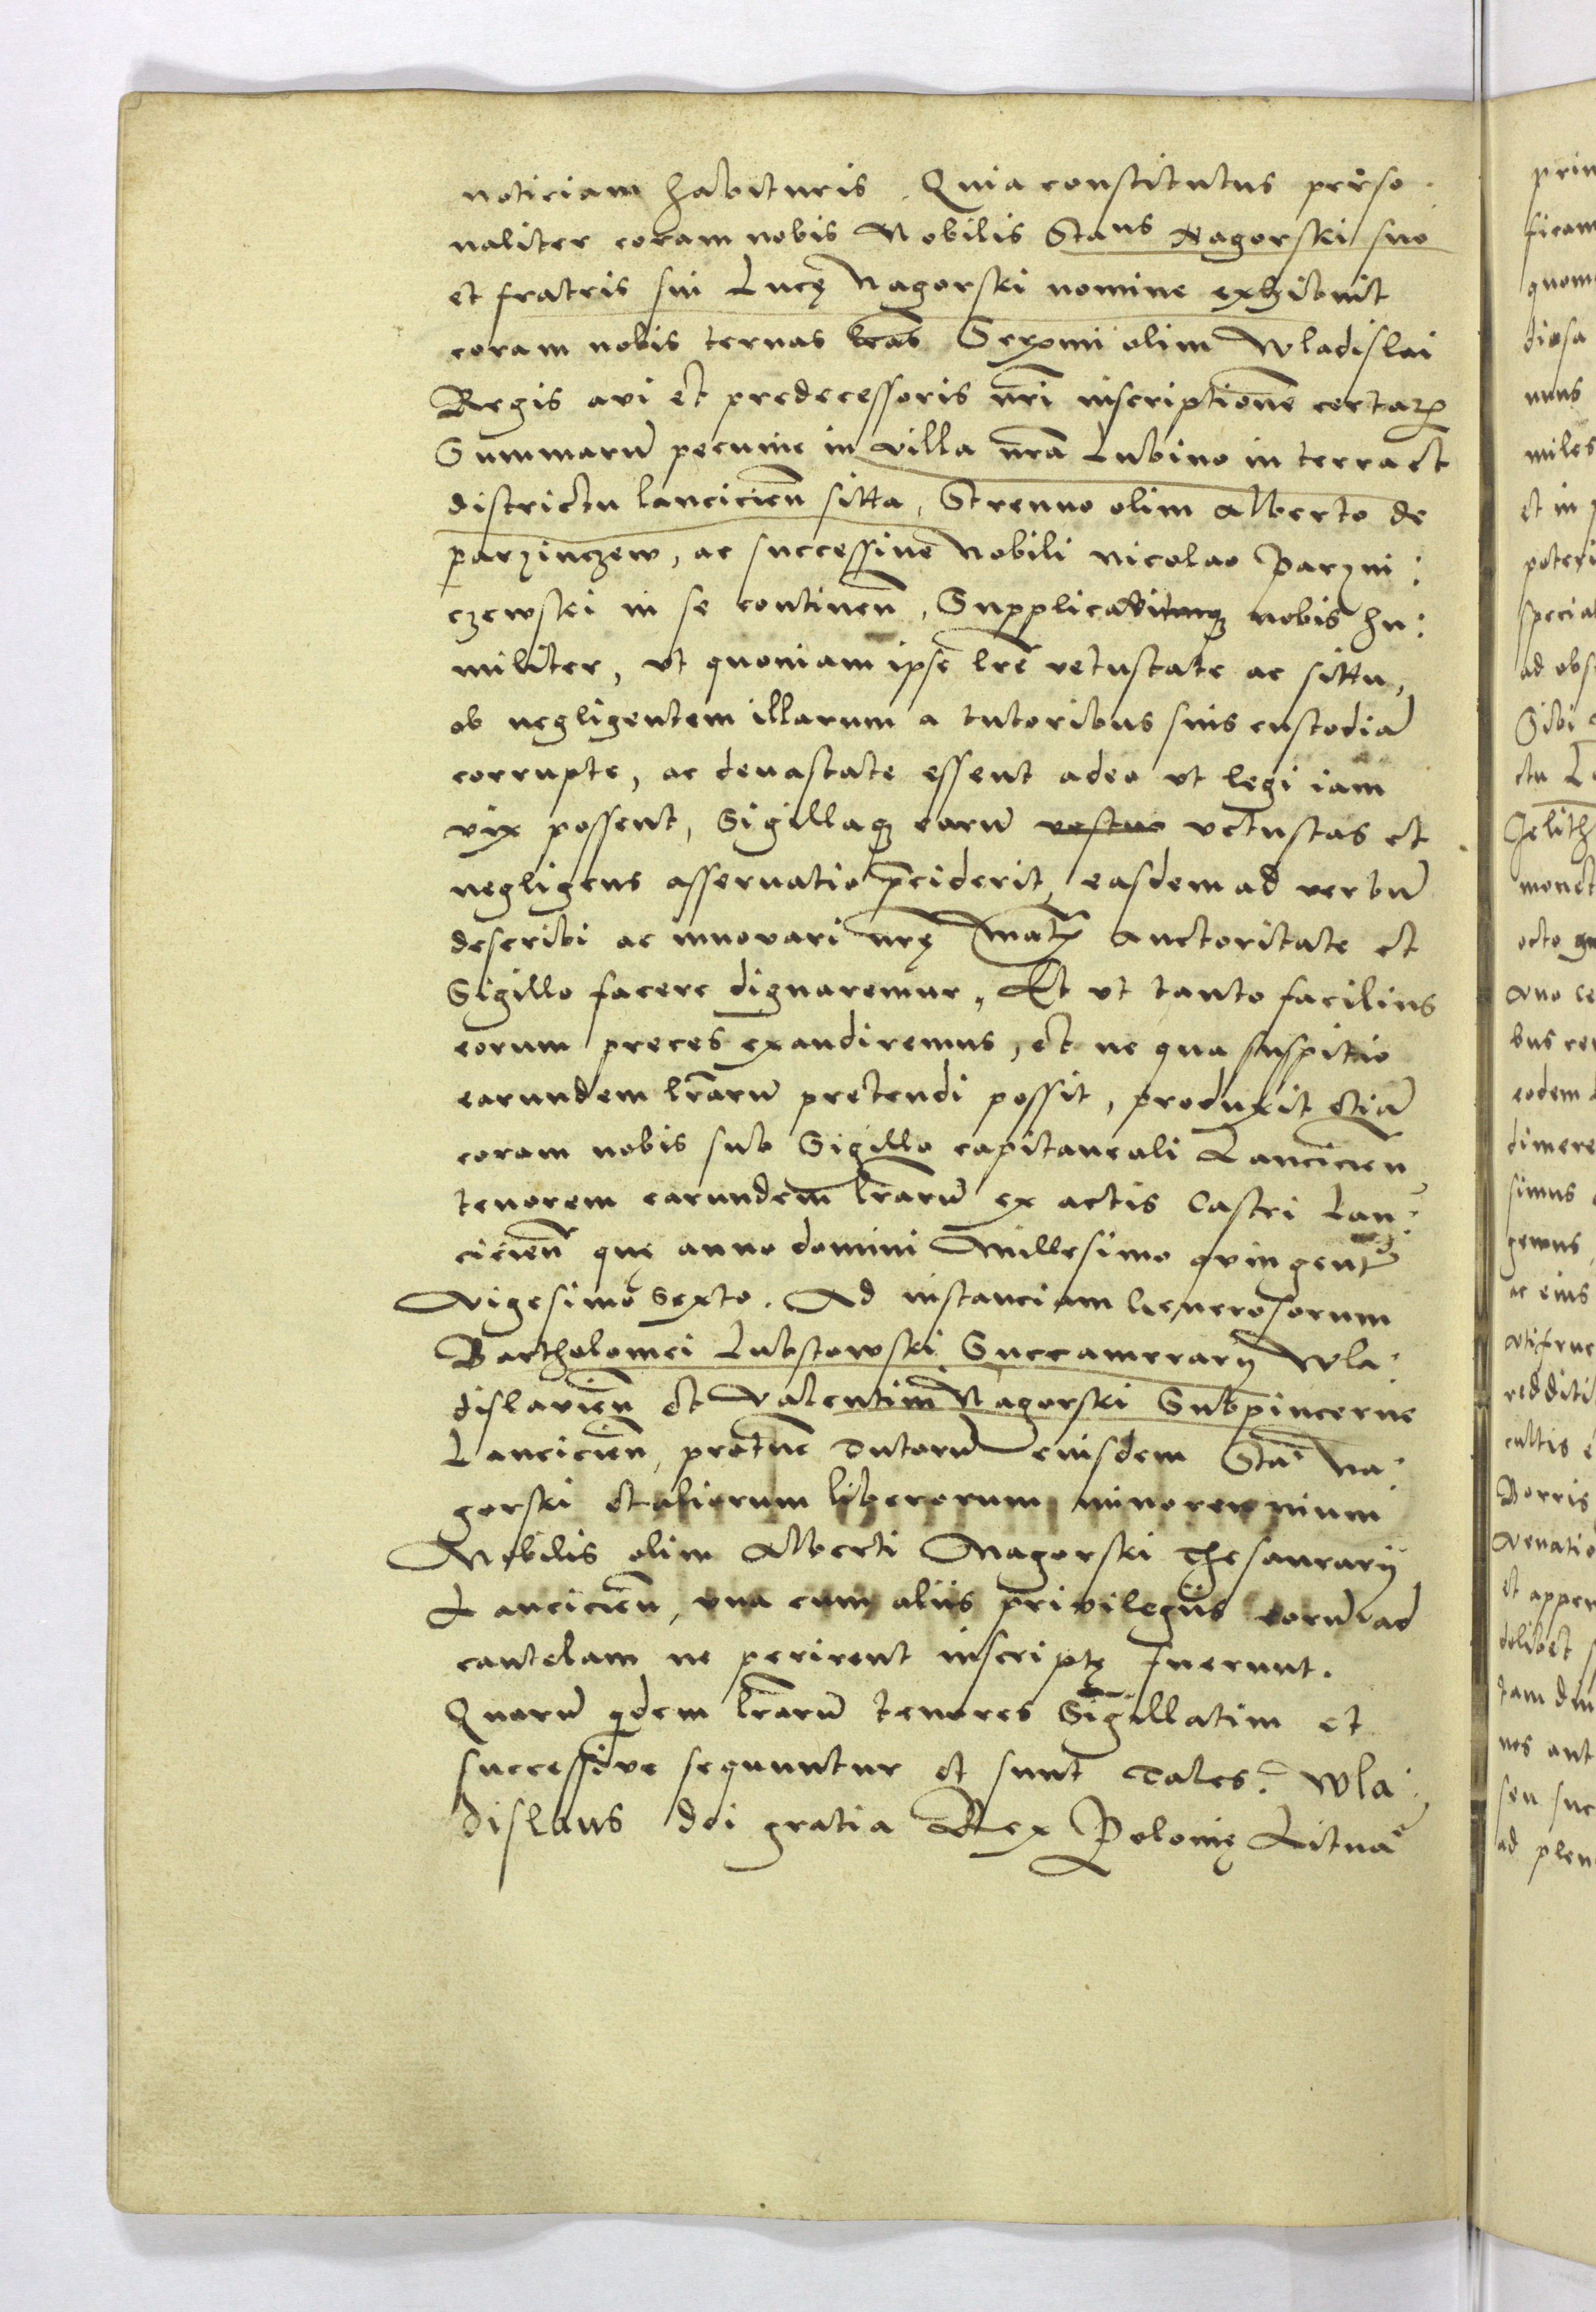 noticiam habituris. Quia constitutus perso
naliter coram nobis Nobilis Stans Nagorski suo
et fratris sui Lucę Nagorski nomine exhibuit
coram nobis ternas lras Sermi olim Wladislai
Regis avi et predecessoris nri inscriptionē certarꝝ
Summarū pecunie in villa nrā Lubino in terra et
districtu lancicien̄ sitta, Strenuo olim Alberto de
parzinczew, ac successive Nobili nicolao Parzni:
czewski in se continen̄, Supplicavitqꝫ nobis hu:
militer, ut quoniam ipsē lrē vetustate ac sittu,
ob negligentem illarum a tutoribus suis custodiā
corrupte, ac devastate essent adeo ut legi iam
vix possent, Sigillaqꝫ earū vetustas et
negligens asservatio p̄ciderit, easdem ad verbū
describi ac innovari nrę Matꝭ auctoritate et
Sigillo facere dignaremur, Et ut tanto facilius
eorum preces exaudiremus, et ne qua suspitio
earundem lrarū pretendi possit, produxit etiā
coram nobis sub Sigillo capitaneali Lancicien̄
tenorem earundem lrarū ex actis Castri Lan:
cicien̄ quę anno domini Millesimo quingentᵒ
vigesimo sexto. Ad instanciam Generosorum
Bartholomei Lubstowski Succamerarij Wla:
dislavien̄ et Valentini Nagorski Subpincerne
Lancicien̄, protūc Tutorū eiusdem Stā: Na:
gorski et aliorum liberorum minorennium
Nobilis olim Alberti Nagorski Thesaurarij
Lancicien̄, una cum aliis privilegiis eorū ad
cautelam ne perirent inscriptę fuerunt.
Quarū qdem lrarū tenores Sigillatim et
successive sequuntur et sunt Tales. Wla:
dislaus dei gratia Rex Polonię Lituā